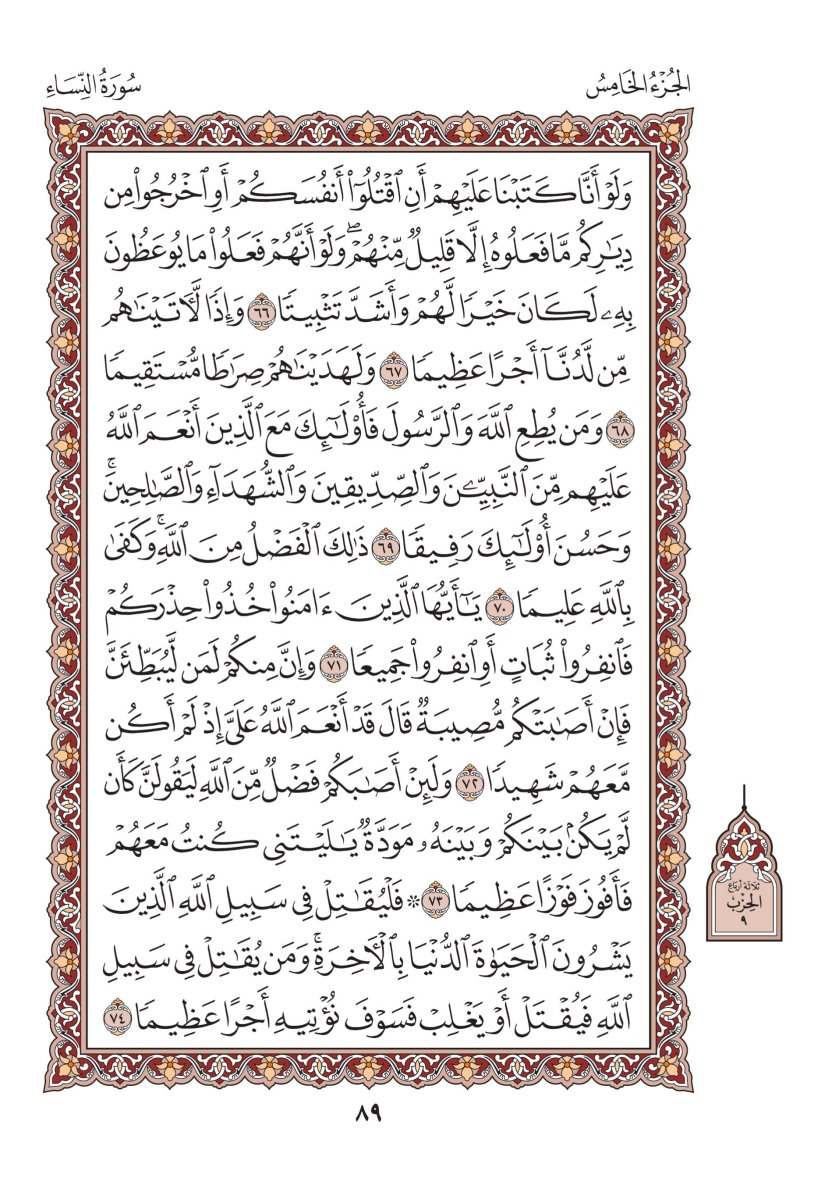 الجُزْءُ الخَامِسُ
سُورَةُ النِّسَاءِ
وَلَوۡ أَنَّا كَتَبۡنَا عَلَيۡهِمۡ أَنِ ٱقۡتُلُوٓاْ أَنفُسَكُمۡ أَوِ ٱخۡرُجُواْ مِن
دِيَٰرِكُم مَّا فَعَلُوهُ إِلَّا قَلِيلٞ مِّنۡهُمۡۖ وَلَوۡ أَنَّهُمۡ فَعَلُواْ مَا يُوعَظُونَ
بِهِۦ لَكَانَ خَيۡرٗا لَّهُمۡ وَأَشَدَّ تَثۡبِيتٗا ٦٦ وَإِذٗا لَّأٓتَيۡنَٰهُم
مِّن لَّدُنَّآ أَجۡرًا عَظِيمٗا ٦٧ وَلَهَدَيۡنَٰهُمۡ صِرَٰطٗا مُّسۡتَقِيمٗا
٦٨ وَمَن يُطِعِ ٱللَّهَ وَٱلرَّسُولَ فَأُوْلَٰٓئِكَ مَعَ ٱلَّذِينَ أَنۡعَمَ ٱللَّهُ
عَلَيۡهِم مِّنَ ٱلنَّبِيِّـۧنَ وَٱلصِّدِّيقِينَ وَٱلشُّهَدَآءِ وَٱلصَّٰلِحِينَۚ
وَحَسُنَ أُوْلَٰٓئِكَ رَفِيقٗا ٦٩ ذَٰلِكَ ٱلۡفَضۡلُ مِنَ ٱللَّهِۚ وَكَفَىٰ
بِٱللَّهِ عَلِيمٗا ٧٠ يَٰٓأَيُّهَا ٱلَّذِينَ ءَامَنُواْ خُذُواْ حِذۡرَكُمۡ
فَٱنفِرُواْ ثُبَاتٍ أَوِ ٱنفِرُواْ جَمِيعٗا ٧١ وَإِنَّ مِنكُمۡ لَمَن لَّيُبَطِّئَنَّ
فَإِنۡ أَصَٰبَتۡكُم مُّصِيبَةٞ قَالَ قَدۡ أَنۡعَمَ ٱللَّهُ عَلَيَّ إِذۡ لَمۡ أَكُن
مَّعَهُمۡ شَهِيدٗا ٧٢ وَلَئِنۡ أَصَٰبَكُمۡ فَضۡلٞ مِّنَ ٱللَّهِ لَيَقُولَنَّ كَأَن
لَّمۡ يَكُنۢ بَيۡنَكُمۡ وَبَيۡنَهُۥ مَوَدَّةٞ يَٰلَيۡتَنِي كُنتُ مَعَهُمۡ
فَأَفُوزَ فَوۡزًا عَظِيمٗا ٧٣ ۞ فَلۡيُقَٰتِلۡ فِي سَبِيلِ ٱللَّهِ ٱلَّذِينَ
يَشۡرُونَ ٱلۡحَيَوٰةَ ٱلدُّنۡيَا بِٱلۡأٓخِرَةِۚ وَمَن يُقَٰتِلۡ فِي سَبِيلِ
ٱللَّهِ فَيُقۡتَلۡ أَوۡ يَغۡلِبۡ فَسَوۡفَ نُؤۡتِيهِ أَجۡرًا عَظِيمٗا ٧٤
ثلاثة أرباع
الحِزْب
٩
٨٩